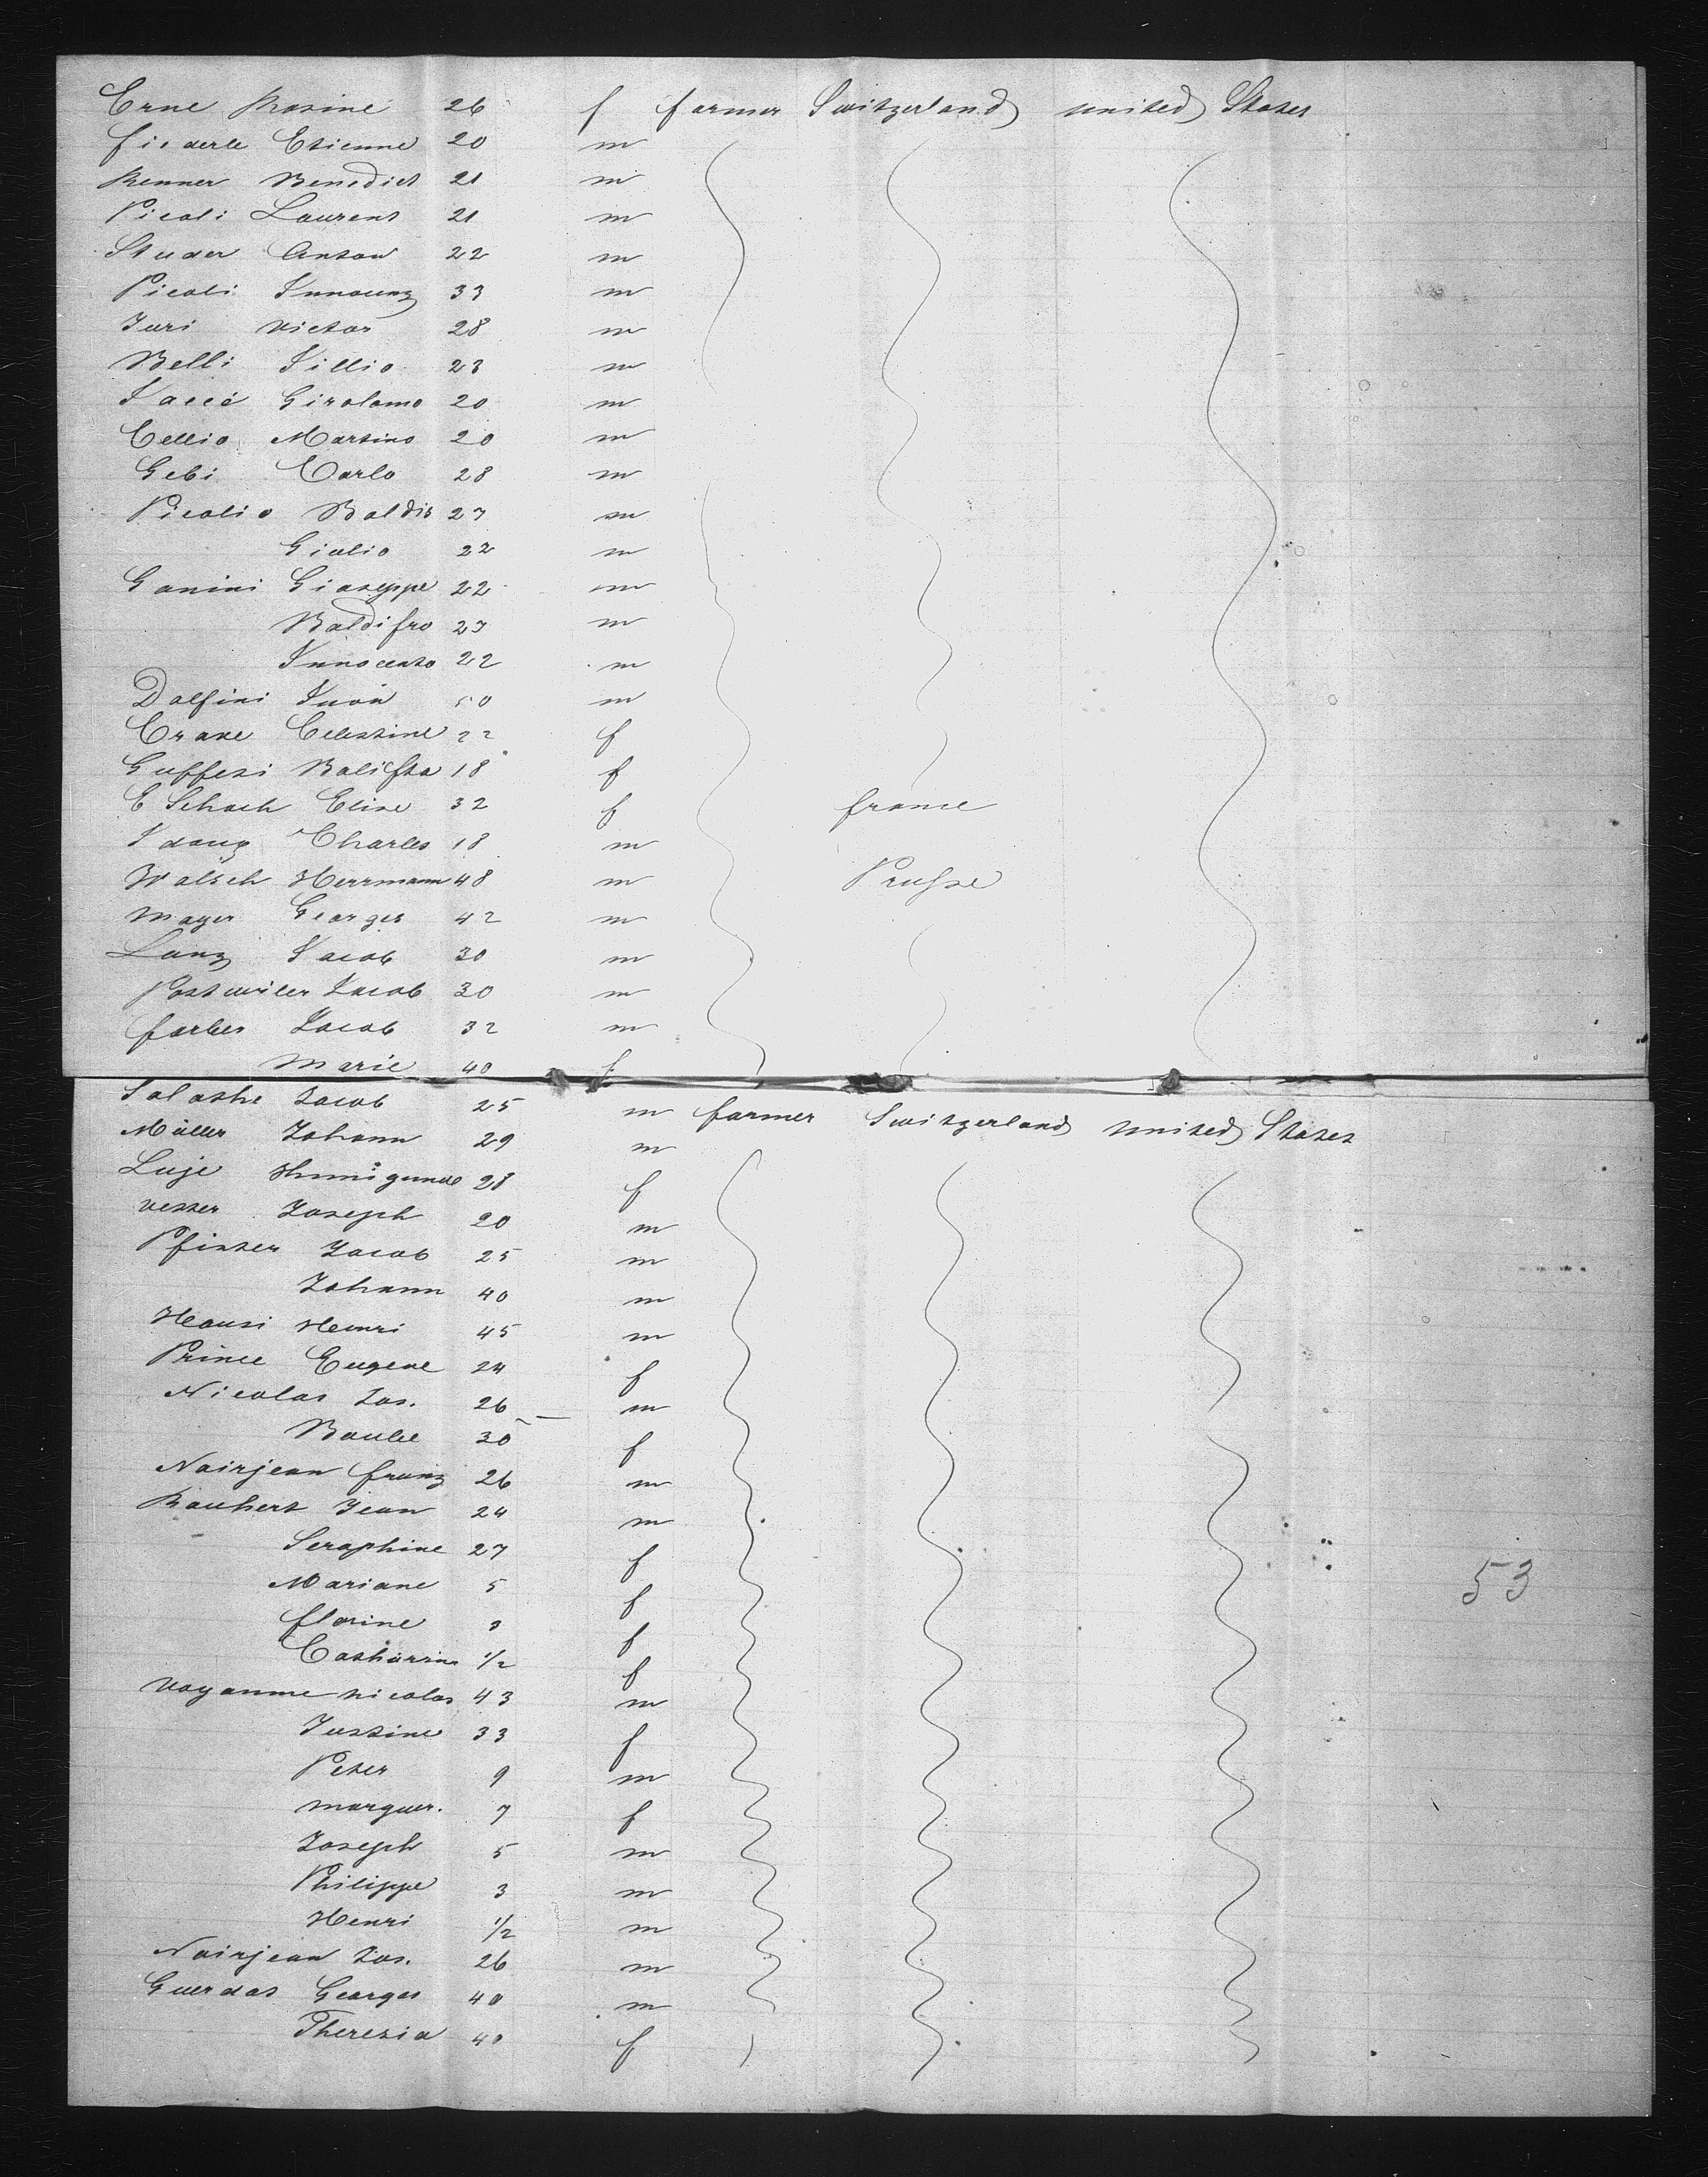 Erne Rosine 26 f farmer Switzerland united States
Fiederle Etienne 20 m
Renner Benedict 21 m
Picoli Laurent 21 m
Studer Anton 22 m
Picoli Innocenz 33 m
Juri Victor 28 m
Belli Jillio 23 m
Girolamo 20 m
Cellio Martino 20 m
Gebi Carlo 28 m
Picolio Baldis 27 m
Giulio 22 m
Ganini Giaseppe 22 m
Baldifro 27 m
Innocento 22 m
Dalfini 50 m
Celestine 22 f
Guffesi 18 f
E Schoch Elise 32 f france
Charles 18 m
Walsch Herrmann 48 m Prusse
Mayer Georges 42 m
Lanz Jacob 30 m
Postwiler Jacob 30 m
farber Jacob 32 m
Marie 40 f
Salathe Jacob 25 m farmer Switzerland united States
Müller Johann 29 m
Luje 28 f
vetter Joseph 20 m
Pfister Jacob 25 m
Johann 40 m
Hausi Henri 45 m
Prince Eugene 24 f
Nicolas Jos. 26 m
30 f
Noirjean franz 26 m
Jean 24 m
Seraphine 27 f
Mariane 5 f
florine 3 f
Catharine 1/2 f
Voyamme nicolas 43 m
Justine 33 f
Peter 9 m
marguer. 7 f
Joseph 5 m
Philippe 3 m
Henri 1/2 m
Noirjean Jos. 26 m
Guerdat Georges 40 m
Theresia 40 f
53